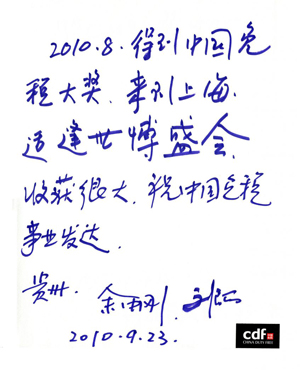 2010.8.得到中国免
税大奖.来到上海.
适逢世博盛会,
收获很大.祝中国免税
事业发达.
贵州.
2010.9.23.
cdf
CHINA DUTY FREE